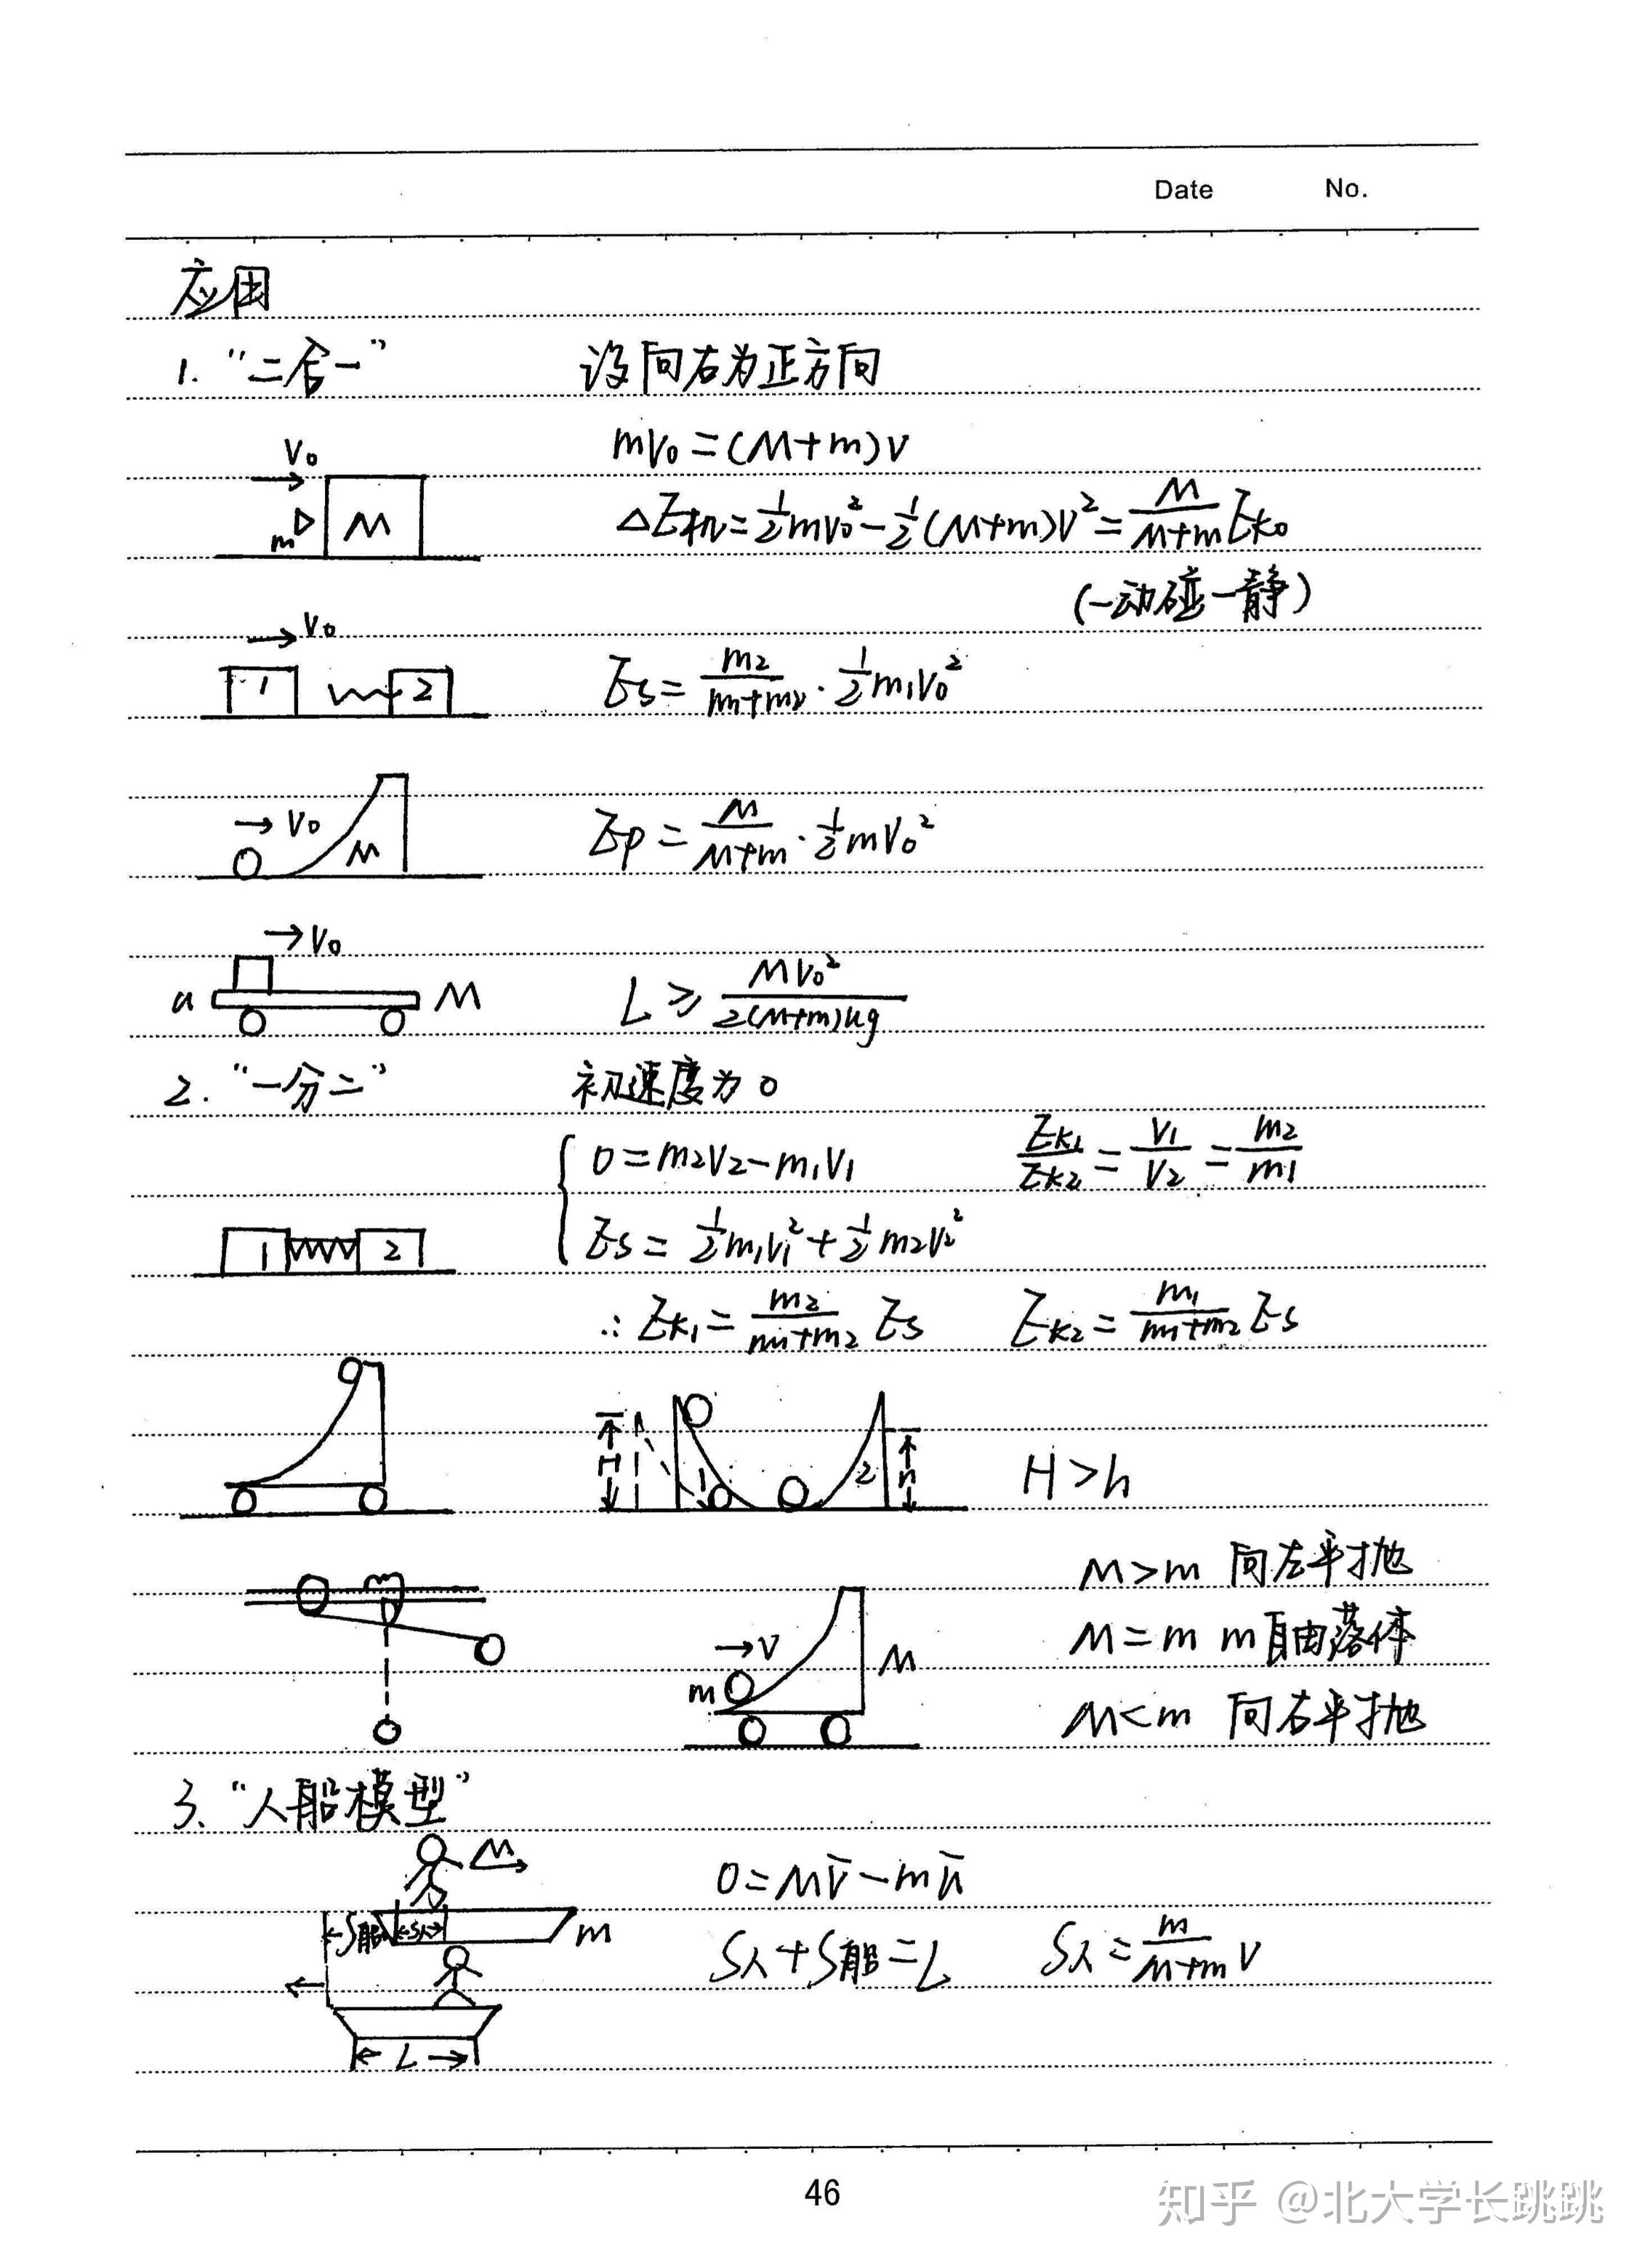 Date No.
应用
1. “二合一” 设向右为正方向
V₀ mV₀=(M+m)V
m M ΔE机=½mV₀²-½(M+m)V²=M/(M+m) Ek₀
(一动碰一静)
V₀
1 2 Es=m₂/(m₁+m₂)·½m₁V₀²
V₀ M Ep=M/(M+m)·½mV₀²
V₀
u M L≥MV₀²/2(M+m)ug
2. “一分二” 初速度为0
0=m₂V₂-m₁V₁ Ek₁/Ek₂=V₁/V₂=m₂/m₁
1 2 Es=½m₁V₁²+½m₂V₂²
∴Ek₁=m₂/(m₁+m₂) Es Ek₂=m₁/(m₁+m₂) Es
H 1 2 h H>h
M>m 向左平抛
V m M M=m m自由落体
M<m 向右平抛
3. “人船模型”
M 0=MV̄-mū
S船 S人 m S人+S船=L S人=m/(M+m) V
L
46
知乎 @北大学长跳跳